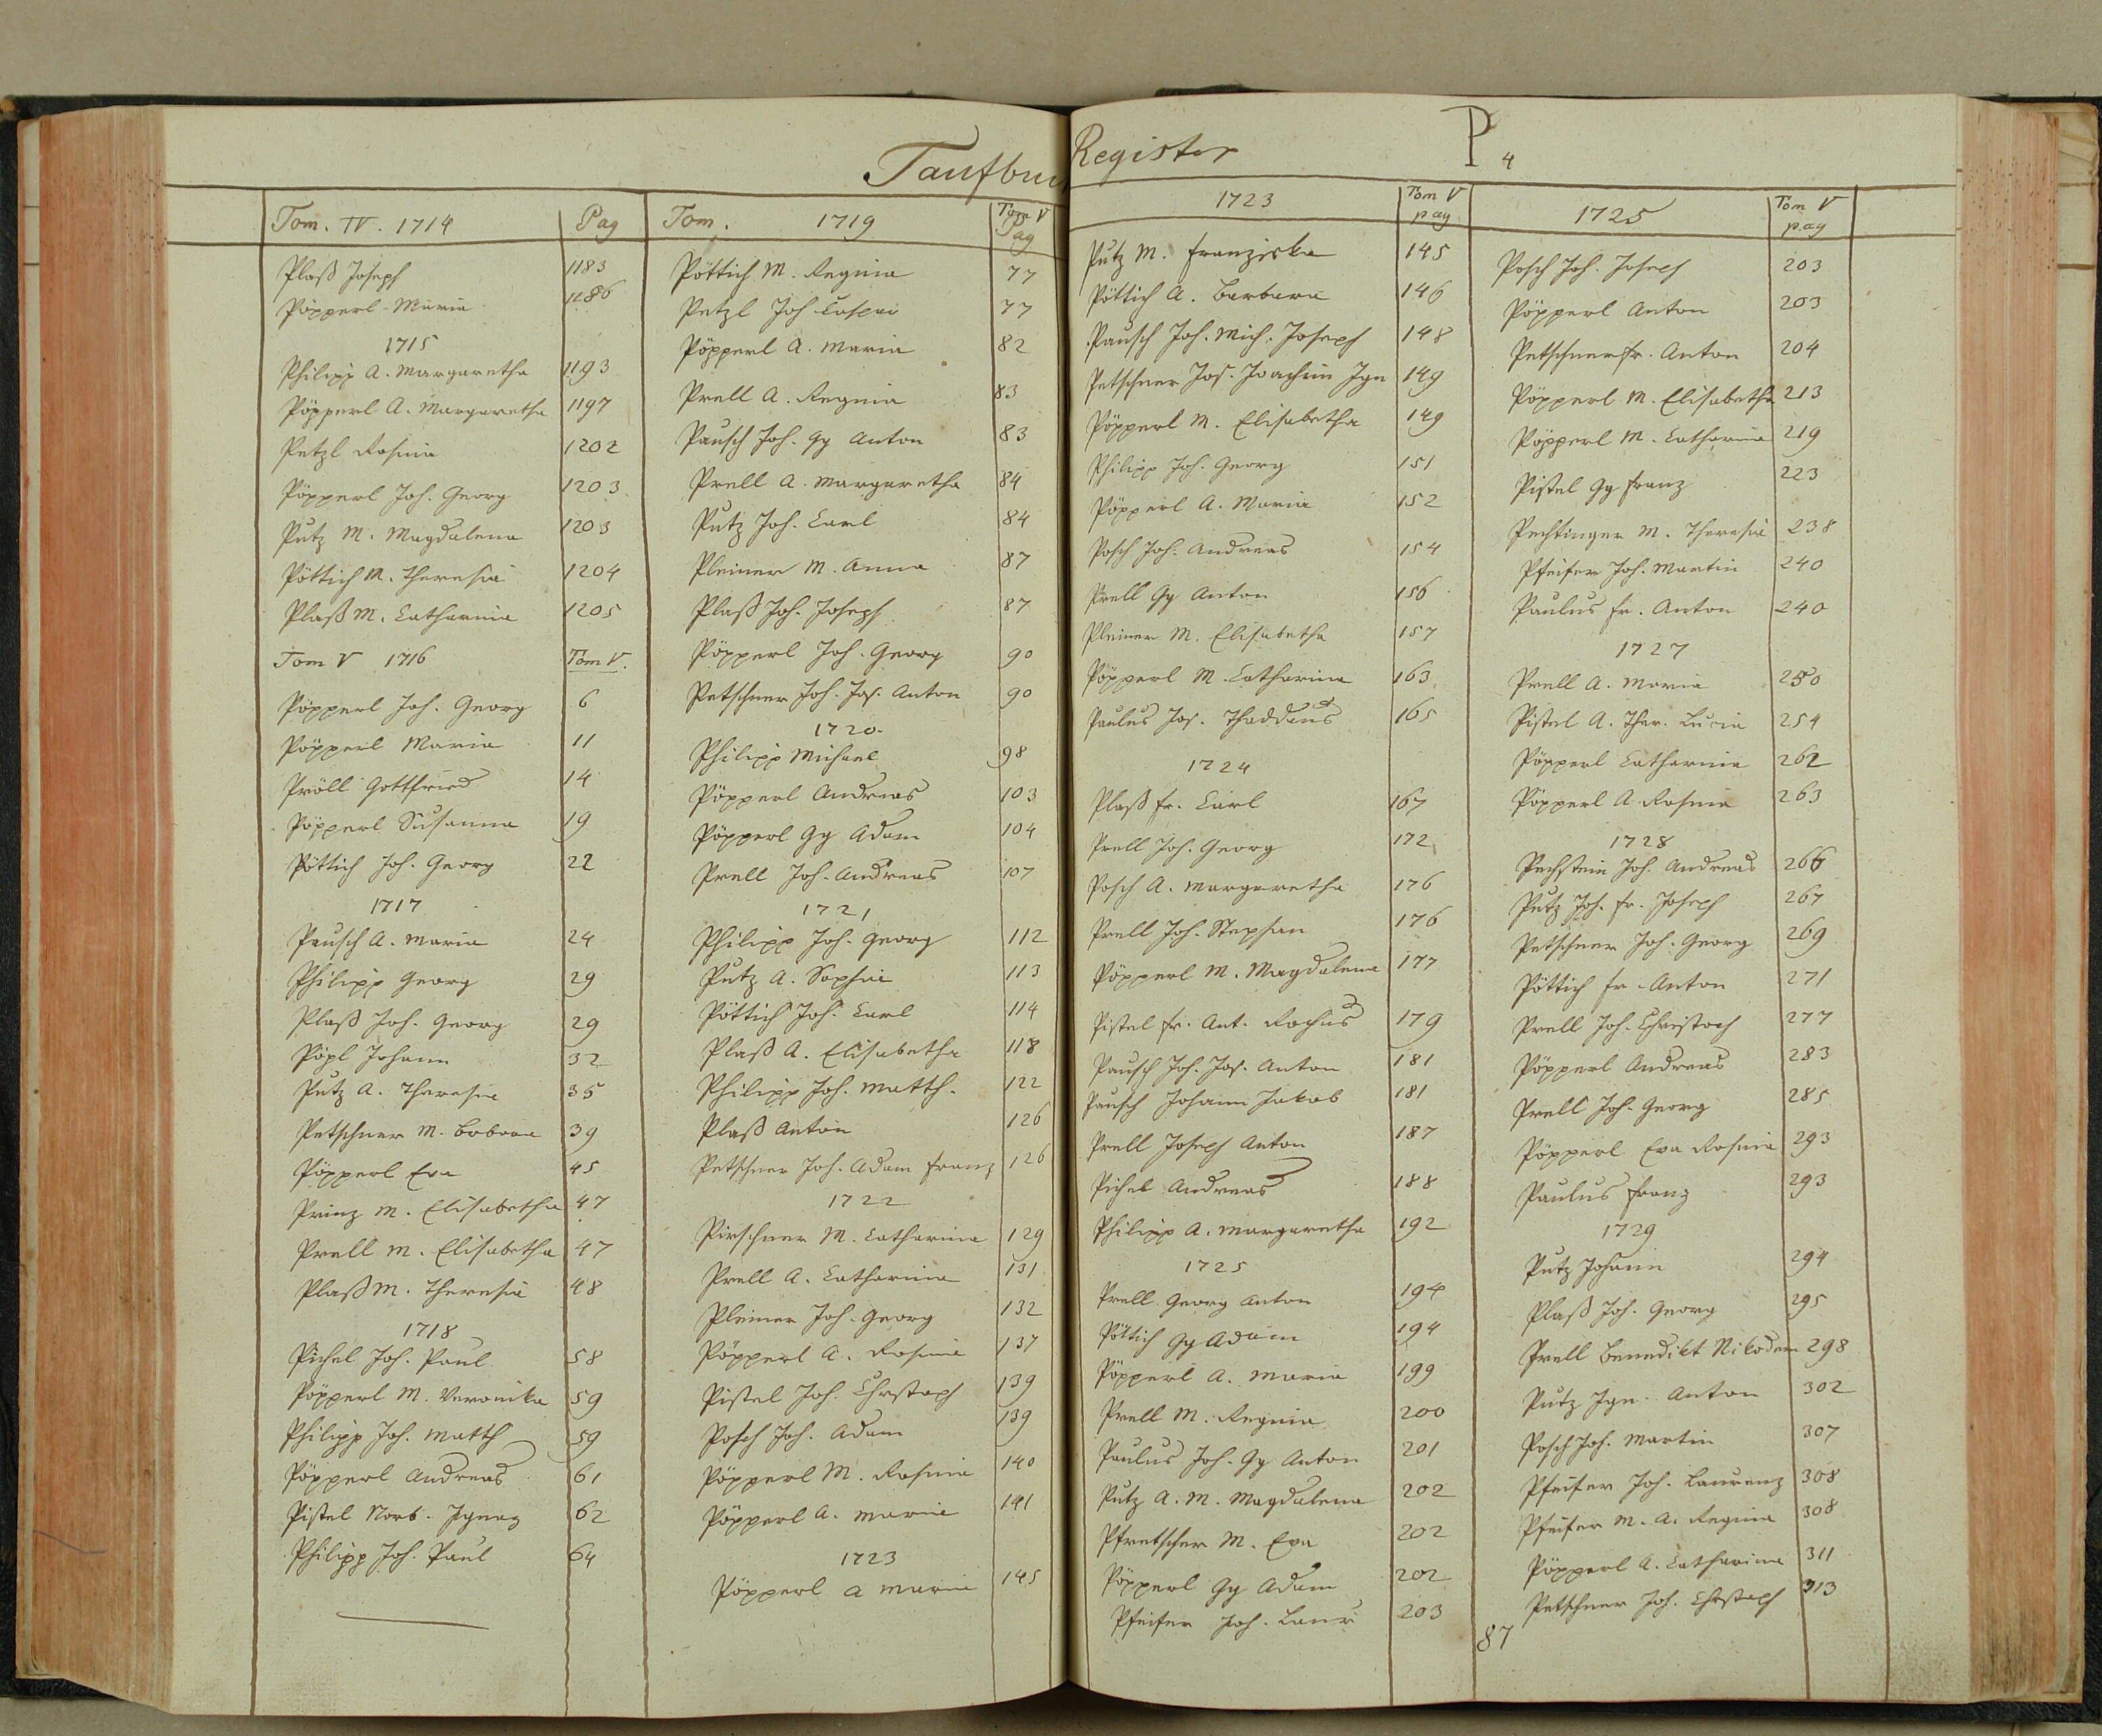 Taufbuch Register P 4
Tom. IV. 1714 Pag
Plaß Joseph 1183
Pöpperl Maria 1186
1715
Philipp A. Margaretha 1193
Pöpperl A. Margaretha 1197
Petzl Rosina 1202
Pöpperl Joh. Georg 1203
Putz M. Magdalena 1203
Pöttich M. Theresia 1204
Plaß M. Catharina 1205
Tom V 1716 Tom V.
Pöpperl Joh. Georg 6
Pöpperl Maria 11
Pröll Gottfried 14
Pöpperl Susanna 19
Pöttich Joh. Georg 22
1717
Pausch A. Maria 24
Philipp Georg 29
Plaß Joh. Georg 29
Pöpl Johann 32
Putz A. Theresia 35
Petschner M. Barbara 39
Pöpperl Eva 45
Prinz M. Elisabetha 47
Prell M. Elisabetha 47
Plaß M. Theresia 48
1718
Pichel Joh. Paul 58
Pöpperl M. Veronika 59
Philipp Joh. Matth 59
Pöpperl Andreas 61
Pistel Norb. Ignaz 62
Philipp Joh. Paul 64
Tom. 1719 Tom V Pag
Pöttich M. Regina 77
Petzl Joh Caspar 77
Pöpperl A. Maria 82
Prell A. Regina 83
Pausch Joh. Gg Anton 83
Prell A. Margaretha 84
Putz Joh. Carl 84
Pleiner M. Anna 87
Plaß Joh. Joseph 87
Pöpperl Joh. Georg 90
Petschner Joh. Jos. Anton 90
1720.
Philipp Michael 98
Pöpperl Andreas 103
Pöpperl Gg Adam 104
Prell Joh. Andreas 107
1721
Philipp Joh. Georg 112
Putz A. Sophia 113
Pöttich Joh. Carl 114
Plaß A. Elisabetha 118
Philipp Joh. Matth. 122
Plaß Anton 126
Petschner Joh. Adam Franz 126
1722
Pirschner M. Catharina 129
Prell A. Catharina 131
Pleiner Joh. Georg 132
Pöpperl A. Rosina 137
Pistel Joh. Chrstoph 139
Posch Joh. Adam 139
Pöpperl M. Rosina 140
Pöpperl A. Maria 141
1723
Pöpperl A Maria 145
1723 Tom V pag
Putz M. Franziska 145
Pöttich A. Barbara 146
Pausch Joh. Mich. Joseph 148
Petschner Jos. Joachim Ign 149
Pöpperl M. Elisabetha 149
Philipp Joh. Georg 151
Pöpperl A. Maria 152
Posch Joh. Andreas 154
Prell Gg Anton 156
Pleiner M. Elisabetha 157
Pöpperl M. Catharina 163
Paulus Jos. Thaddäus 165
1724
Plaß Fr. Carl 167
Prell Joh. Georg 172
Posch A. Margaretha 176
Prell Joh. Stephan 176
Pöpperl M. Magdalena 177
Pistel Fr. Ant. Rochus 179
Pausch Joh. Jos. Anton 181
Pausch Johann Jakob 181
Prell Joseph Anton 187
Pichel Andreas 188
Philipp A. Margaretha 192
1725
Prell Georg Anton 194
Pöttich Gg Adam 194
Pöpperl A. Maria 199
Prell M. Regina 200
Paulus Joh. Gg Anton 201
Putz A. M. Magdalena 202
Pfretscher M. Eva 202
Pöpperl Gg Adam 202
Pfeifer Joh. Laur 203
1725 Tom V pag
Posch Joh. Joseph 203
Pöpperl Anton 203
Petschner Fr. Anton 204
Pöpperl M. Elisabetha 213
Pöpperl M. Catharina 219
Pistel Gg Franz 223
Pechtinger M. Theresia 238
Pfeifer Joh. Martin 240
Paulus Fr. Anton 240
1727
Prell A. Maria 250
Pistel A. Ther. Lucia 254
Pöpperl Catharina 262
Pöpperl A Rosina 263
1728
Pechstein Joh. Andreas 266
Putz Joh. Fr. Joseph 267
Petschner Joh. Georg 269
Pöttich Fr. Anton 271
Prell Joh. Christoph 277
Pöpperl Andreas 283
Prell Joh. Georg 285
Pöpperl Eva Rosina 293
Paulus Franz 293
1729
Putz Johann 294
Plaß Joh. Georg 295
Prell Benedikt Nikodem 298
Putz Ign. Anton 302
Posch Joh. Martin 307
Pfeifer Joh. Laurenz 308
Pfeifer M. A. Regina 308
Pöpperl A. Catharina 311
Petschner Joh. Chrstoph 313
87